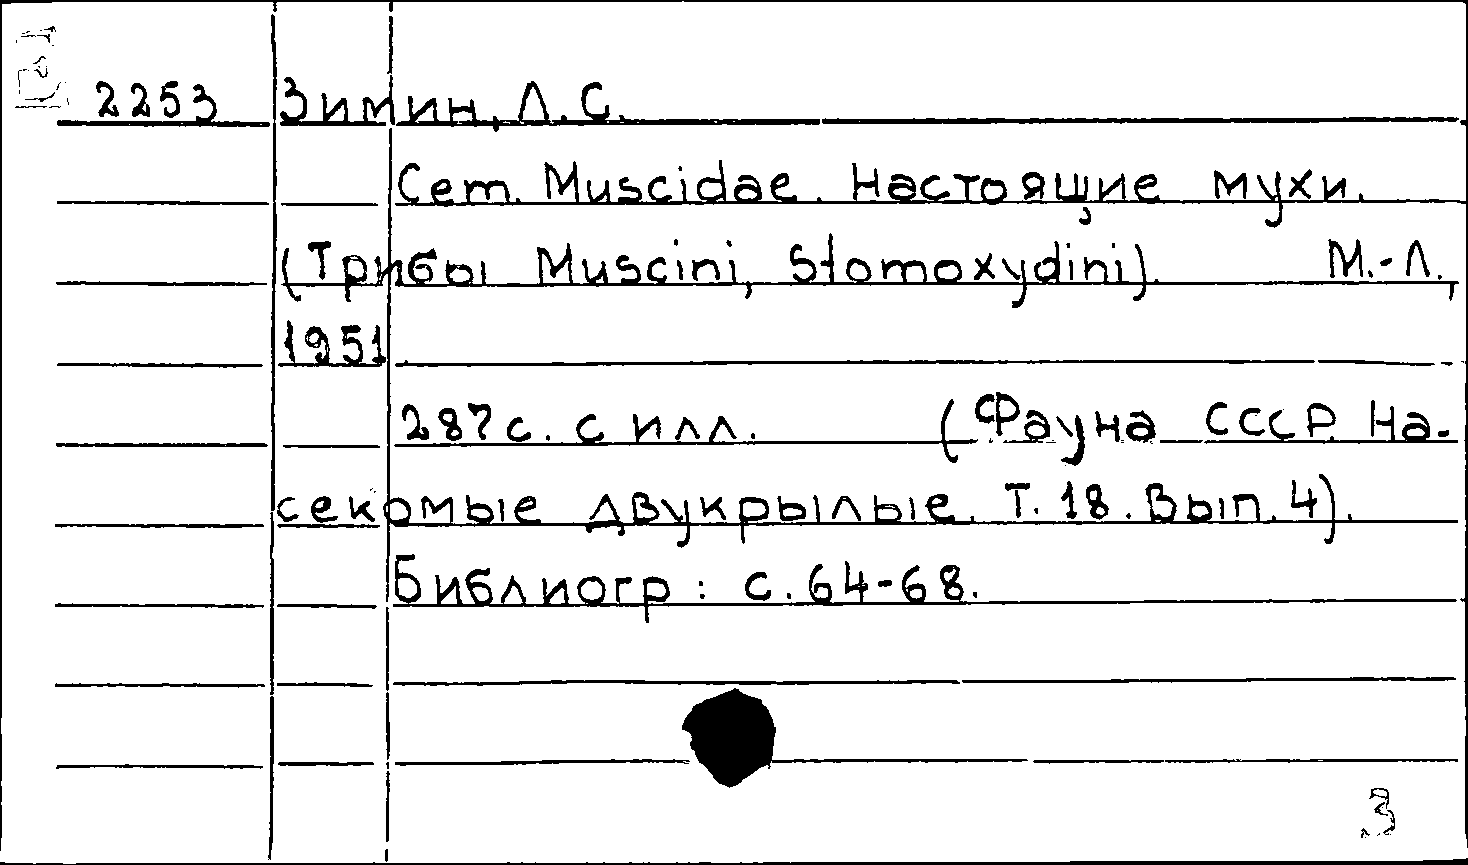 2253 Зимин, Л.С.
Сет. Muscidae. Настоящие мухи.
(Трибы Muscini, Stomoxydini). М.-Л.,
1951.
287 с. с илл. (Фауна СССР. На-
секомые двукрылые. Т. 18. Вып. 4).
Библиогр: с. 64-68.
3